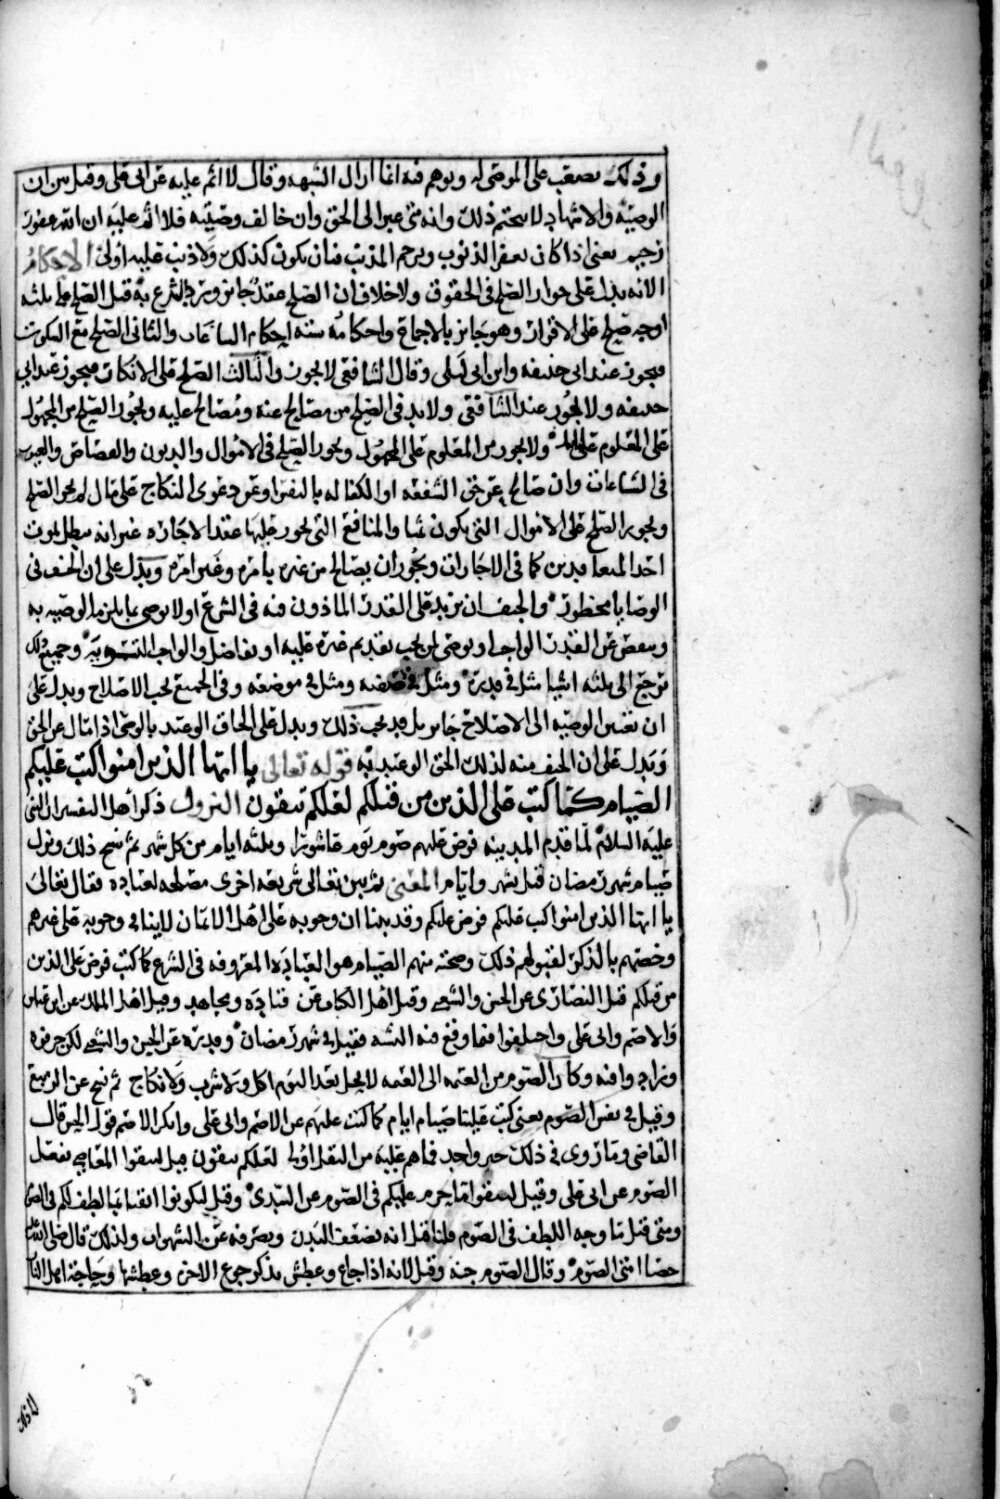 وذلك يصعب على الموصى له ويوهم فيه اثما ازال الشبهة وقال لا اثم عليه عن ابي علي وقيل بين ان
الوصية والاشهاد لا يحتم ذلك وانه متى غير الى الحق وان خالف وصيته فلا اثم عليه ان الله غفور
رحيم يعني اذا كان يغفر الذنوب ويرحم المذنب فبان يكون كذلك ولا ذنب عليه اولى الاحكام
الاية يدل على جواز الصلح في الحقوق ولا خلاف ان الصلح عقد جايز ورد الشرع به قيل الصلح على ثلثة
اوجه صلح على الاقرار وهو جايز بالاجماع واحكامه سنة احكام البياعات والثاني الصلح مع السكوت
فيجوز عند ابي حنيفة وابن ابي ليلى وقال الشافعي لا يجوز والثالث الصلح على الانكار فيجوز عند ابي
حنيفة ولا يجوز عند الشافعي ولا بد في الصلح من مصالح عنه ومصالح عليه ويجوز الصلح من المجهول
على المعلوم ولا يجوز من المعلوم على المجهول ويجوز الصلح في الاموال والديون والقصاص والعيوب
في البياعات وان صالح عن حق الشفعة او الكفالة بالنفس او عن دعوى النكاح على مال لم يجز الصلح
ويجوز الصلح على الاموال التي يكون ثمنا والمنافع التي يجوز عليها عقد الاجارة غير انه يبطل بموت
احد المتعاقدين كما في الاجارات ويجوز ان يصالح من غيره بامره وغير امره ويدل على ان الجنف في
الوصايا محظور والجنف ان يزيد على القدر الماذون فيه في الشرع او لا يوصي بما يلزم الوصية به
وينقص عن القدر الواجب او يوصي لمن يجب تقديم غيره عليه او يفاضل والواجب التسوية وجميع ذلك
ترجع الى ثلثة اشيا مثل في قدره ومثل في صفته ومثل في موضعه وفي الجميع يجب الاصلاح ويدل على
ان تغيير الوصية الى الاصلاح جايز بل قد يجب ذلك ويدل على الحاق الوعيد بالوصي اذا مال عن الحق
ويدل على ان الجنف منه لذلك الحق الوعيد به قوله تعالى يا ايها الذين امنوا كتب عليكم
الصيام كما كتب على الذين من قبلكم لعلكم تتقون النزول ذكر اهل التفسير ان النبي
عليه السلام لما قدم المدينة فرض عليهم صوم يوم عاشورا وثلثة ايام من كل شهر ثم نسخ ذلك ونزل
صيام شهر رمضان قبل بشهر وايام المعنى ثم بين تعالى شريعة اخرى مصلحة لعباده فقال تعالى
يا ايها الذين امنوا كتب عليكم فرض عليكم وقد بينا ان وجوبه على اهل الايمان لا ينافي وجوبه على غيرهم
وخصهم بالذكر لقبولهم ذلك وصحته منهم الصيام هو العبادة المعروفة في الشرع كما كتب فرض على الذين
من قبلكم قيل النصارى عن الحسن والشعبي وقيل اهل الكتاب عن قتادة ومجاهد وقيل اهل الملل عن ابن عباس
والاصم وابي علي واختلفوا فيما وقع فيه التشبيه فقيل في شهر رمضان وقدره عن الحسن والشعبي لكن حرفوه
وزادوا فيه وكان الصوم من العتمة الى العتمة لا يحل بعد النوم اكل ولا شرب ولا نكاح ثم نسخ عن الربيع
وقيل في نفس الصوم يعني كتب علينا صيام ايام كما كتب عليهم عن الاصم وابي علي وانكر الاصم قول الحسن قال
القاضي وما روي في ذلك خبر واحد فما هم عليه من النقل اولى لعلكم تتقون قيل لتتقوا المعاصي بفعل
الصوم عن ابي علي وقيل لتتقوا ما حرم عليكم في الصوم عن السدي وقيل لتكونوا اتقيا بما لطف لكم في الصوم
ومتى قيل ما وجه اللطف في الصوم قلنا قيل انه يضعف البدن ويصرفه عن الشهوات ولذلك قال صلى الله عليه
خصا امتي الصوم وقال الصوم جنة وقيل لانه اذا جاع وعطش يذكر جوع الاخرة وعطشها وحاجة اهل النار